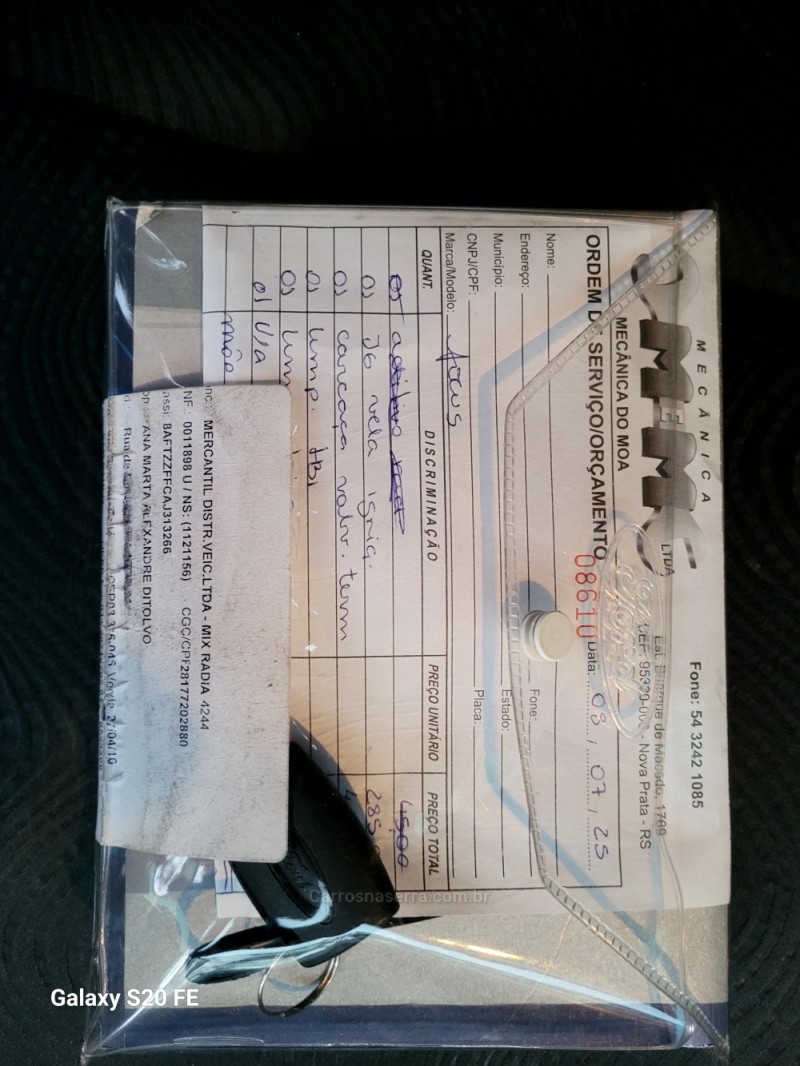 MECÂNICA
LTDA
Fone: 54 3242 1085
1789
Nova Prata - RS
MECÂNICA DO MOA
ORDEM DE SERVIÇO/ORÇAMENTO
08610
Data: 03 / 07 / 25
Nome:
Endereço:
Fone:
Município:
Estado:
CNPJ/CPF:
Placa:
Marca/Modelo: focus
QUANT. DISCRIMINAÇÃO PREÇO UNITÁRIO PREÇO TOTAL
05 aditivo 45,00
05 J6 vela igniç. 285
05 carcaça valv. term
05 limp. tbi
05 limp
MERCANTIL DISTR.VEIC.LTDA - MIX RADIA 4244
NF.: 0011898 U / NS: (1121156) CGC/CPF28177202880
assi: 8AFTZZFFCAJ313266
ANA MARTA ALEXANDRE DITOLVO
Rua
Carrosnaserra.com.br
Galaxy S20 FE